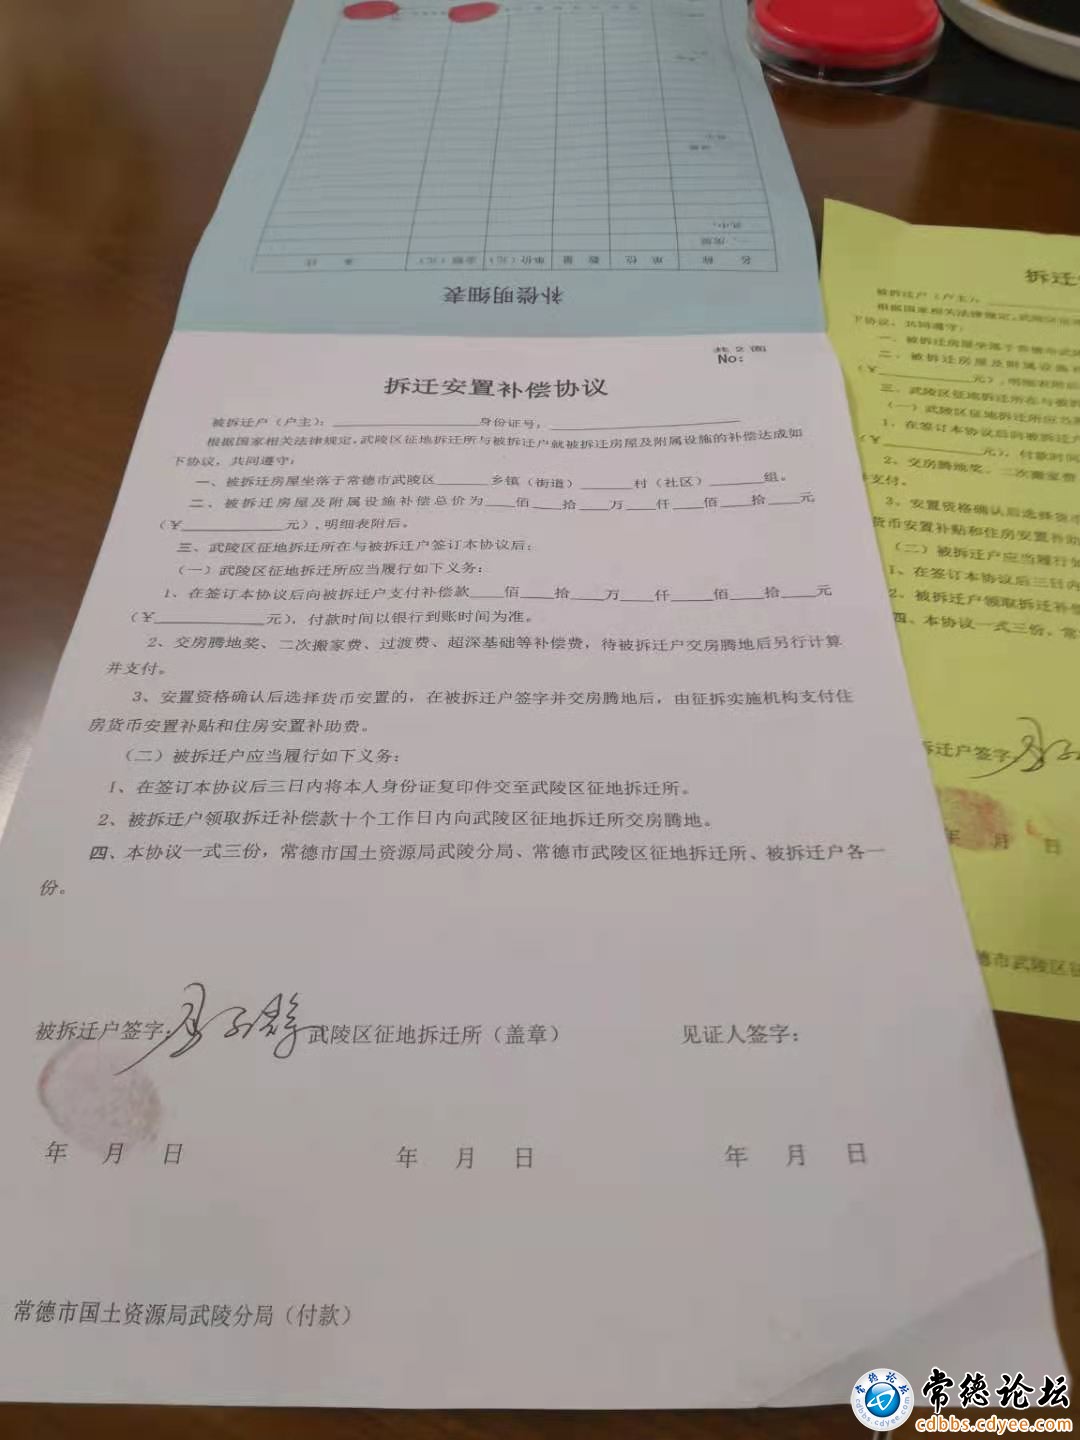 补偿明细表
名 称
单 位
数 量
单价（元）
金额（元）
备 注
一、房屋
共 2 面
No：
拆迁安置补偿协议
被拆迁户（户主）：身份证号：
根据国家相关法律规定，武陵区征地拆迁所与被拆迁户就被拆迁房屋及附属设施的补偿达成如
下协议，共同遵守：
一、被拆迁房屋坐落于常德市武陵区______乡镇（街道）______村（社区）______组。
二、被拆迁房屋及附属设施补偿总价为___佰___拾___万___仟___佰___拾___元
（￥__________元），明细表附后。
三、武陵区征地拆迁所在与被拆迁户签订本协议后：
（一）武陵区征地拆迁所应当履行如下义务：
1、在签订本协议后向被拆迁户支付补偿款___佰___拾___万___仟___佰___拾___元
（￥__________元），付款时间以银行到账时间为准。
2、交房腾地奖、二次搬家费、过渡费、超深基础等补偿费，待被拆迁户交房腾地后另行计算
并支付。
3、安置资格确认后选择货币安置的，在被拆迁户签字并交房腾地后，由征拆实施机构支付住
房货币安置补贴和住房安置补助费。
（二）被拆迁户应当履行如下义务：
1、在签订本协议后三日内将本人身份证复印件交至武陵区征地拆迁所。
2、被拆迁户领取拆迁补偿款十个工作日内向武陵区征地拆迁所交房腾地。
四、本协议一式三份，常德市国土资源局武陵分局、常德市武陵区征地拆迁所、被拆迁户各一
份。
被拆迁户签字： 武陵区征地拆迁所（盖章） 见证人签字：
年 月 日 年 月 日 年 月 日
常德市国土资源局武陵分局（付款）
拆迁安
被拆迁户（户主）：
根据国家相关法律规定，武陵区征
下协议，共同遵守：
一、被拆迁房屋坐落于常德市武陵
二、被拆迁房屋及附属设施补
（￥__________元），明细表附后
三、武陵区征地拆迁所在与被拆
（一）武陵区征地拆迁所应当履
1、在签订本协议后向被拆迁户
（￥__________元），付款时间
2、交房腾地奖、二次搬家费
并支付。
3、安置资格确认后选择货币
货币安置补贴和住房安置补助
（二）被拆迁户应当履行如
1、在签订本协议后三日内
2、被拆迁户领取拆迁补偿
四、本协议一式三份，常
拆迁户签字
年 月 日
德市武陵区征
常德论坛
cdbbs.cdyee.com